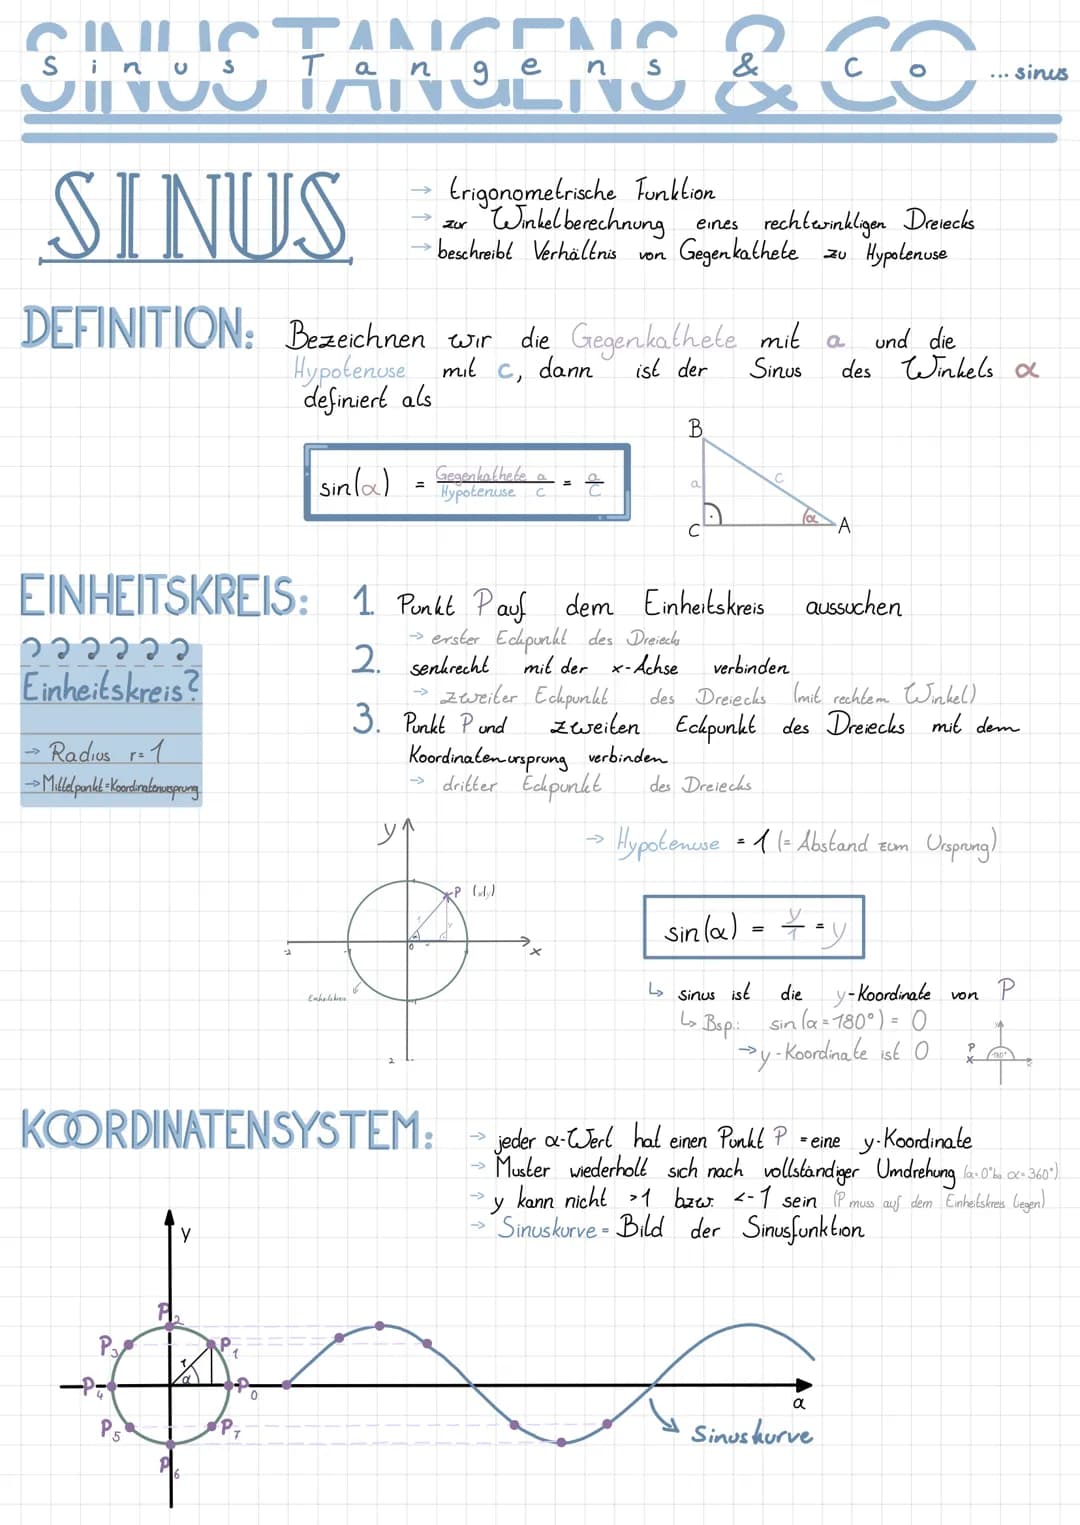 SINUS TANGENS & CO
Sinus Tangens & Co ... sinus
SINUS
→ trigonometrische Funktion
→ zur Winkelberechnung eines rechtwinkligen Dreiecks
→ beschreibt Verhältnis von Gegenkathete zu Hypotenuse
DEFINITION: Bezeichnen wir die Gegenkathete mit a und die
Hypotenuse mit c, dann ist der Sinus des Winkels α
definiert als
sin(α) = Gegenkathete a / Hypotenuse c = a/c
B
a
c
C
α
A
EINHEITSKREIS: 1. Punkt P auf dem Einheitskreis aussuchen
→ erster Eckpunkt des Dreiecks
2. senkrecht mit der x-Achse verbinden
→ zweiter Eckpunkt des Dreiecks (mit rechtem Winkel)
3. Punkt P und zweiten Eckpunkt des Dreiecks mit dem
Koordinatenursprung verbinden
→ dritter Eckpunkt des Dreiecks
Einheitskreis?
→ Radius r=1
→ Mittelpunkt=Koordinatenursprung
y
P
x
0
2
→ Hypotenuse = 1 (= Abstand zum Ursprung)
sin(α) = y/1 = y
↳ sinus ist die y-Koordinate von P
↳ Bsp.: sin(α=180°) = 0
→ y-Koordinate ist 0
P
x
180°
KOORDINATENSYSTEM:
→ jeder α-Wert hat einen Punkt P = eine y-Koordinate
→ Muster wiederholt sich nach vollständiger Umdrehung (α=0° bis α=360°)
→ y kann nicht >1 bzw. <-1 sein (P muss auf dem Einheitskreis liegen)
→ Sinuskurve = Bild der Sinusfunktion
y
P2
P3
P1
1
α
P4
P0
P5
P7
P6
α
Sinuskurve